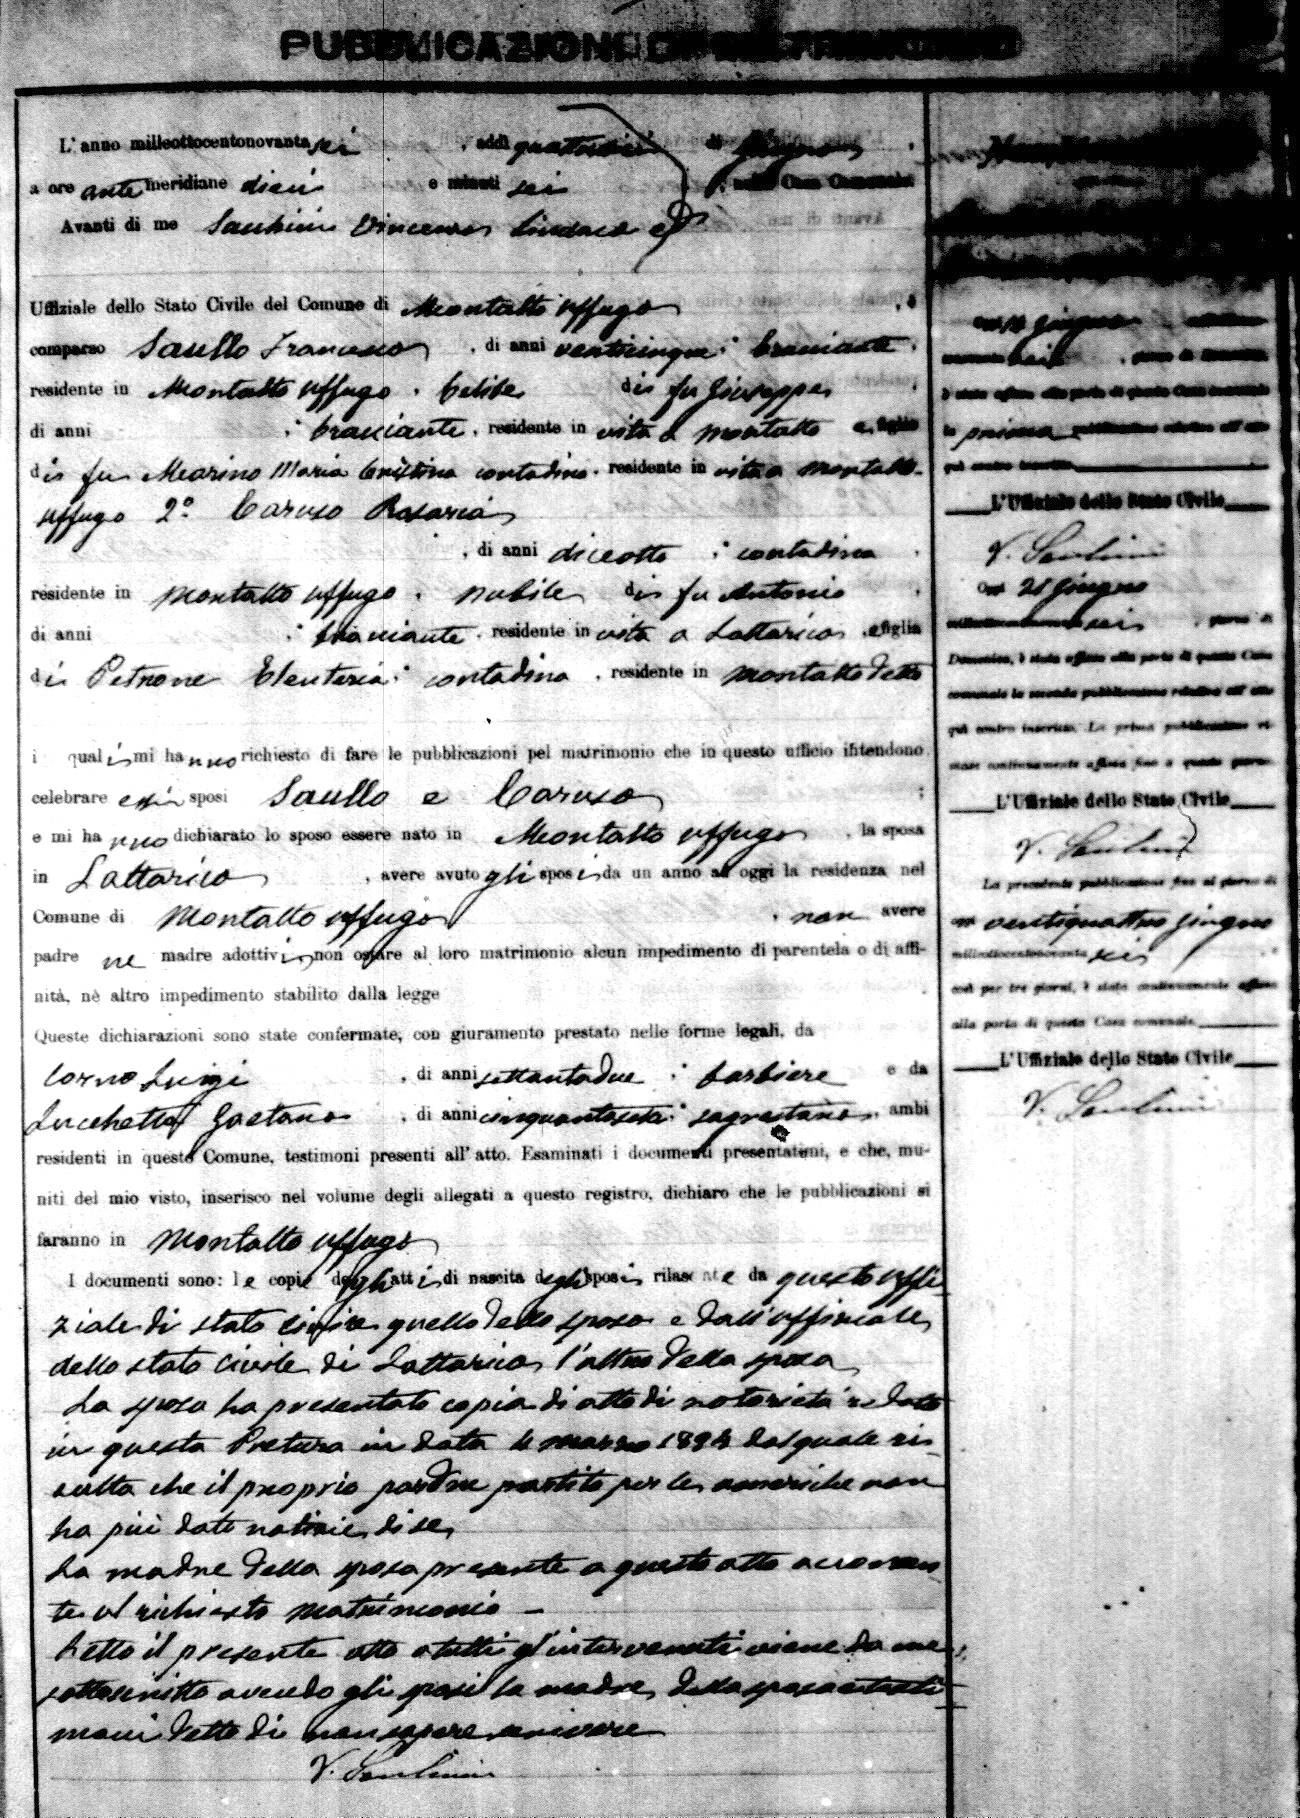 PUBBLICAZIONI DI MATRIMONIO
L'anno milleottocentonovanta sei, addì quattordici di Giugno
a ore ante meridiane dieci e minuti sei, nella Casa Comunale
Avanti di me Vincenzo Sindaco ed
Uffiziale dello Stato Civile del Comune di Montalto Uffugo, è
comparso Saullo Francesco, di anni venticinque; bracciante,
residente in Montalto Uffugo, celibe di fu Giuseppe
di anni ; bracciante, residente in vita a Montalto e figlio
di fu Marino Maria Cristina contadina, residente in vita a Montalto
Uffugo 2º Caruso Rosaria
, di anni diciotto; contadina
residente in Montalto Uffugo, nubile di fu Antonio
di anni ; bracciante, residente in vita a Lattarico, e figlia
di Petrone Eleuteria; contadina, residente in Montalto detto
i quali mi hanno richiesto di fare le pubblicazioni pel matrimonio che in questo ufficio intendono
celebrare essi sposi Saullo e Caruso ;
e mi hanno dichiarato lo sposo essere nato in Montalto Uffugo, la sposa
in Lattarico, avere avuto gli sposi da un anno ad oggi la residenza nel
Comune di Montalto Uffugo, non avere
padre ne madre adottivi, non ostare al loro matrimonio alcun impedimento di parentela o di affi-
nità, nè altro impedimento stabilito dalla legge
Queste dichiarazioni sono state confermate, con giuramento prestato nelle forme legali, da
Luigi, di anni settantadue; barbiere e da
Lucchetta Gaetano, di anni; sagrestano, ambi
residenti in questo Comune, testimoni presenti all'atto. Esaminati i documenti presentatimi, e che, mu-
niti del mio visto, inserisco nel volume degli allegati a questo registro, dichiaro che le pubblicazioni si
faranno in Montalto Uffugo
I documenti sono: le copie degli atti di nascita degli sposi rilasciate da questo uffi-
ziale di stato civile quello dello sposo e dall'ufficiale
dello stato civile di Lattarico l'altro della sposa
La sposa ha presentato copia di atto di notorietà redatto
in questa Pretura in data 4 marzo dal quale ri-
sulta che il proprio padre partito per le americhe non
ha più dato notizie di se
La madre della sposa presente a questo atto acconsen-
te al richiesto matrimonio –
Letto il presente atto a tutti gl'intervenuti viene da me
sottoscritto avendo gli sposi la madre della sposa e i testi-
moni detto di non sapere scrivere
V.
Giugno
sei, giorno di Domenica,
è stata affissa alla porta di questa Casa comunale
la prima pubblicazione relativa all'atto
quì contro inscritto
L'Uffiziale dello Stato Civile
V.
Oggi 21 Giugno
sei, giorno di
Domenica, è stata affissa alla porta di questa Casa
comunale la seconda pubblicazione relativa all'atto
quì contro inscritto. La prima pubblicazione ri-
mase continuamente affissa fino a questo giorno
L'Uffiziale dello Stato Civile
V.
La precedente pubblicazione fino al giorno di
oggi ventiquattro Giugno
milleottocentonovanta sei
cioè per tre giorni, è stata continuamente affissa
alla porta di questa Casa comunale
L'Uffiziale dello Stato Civile
V.